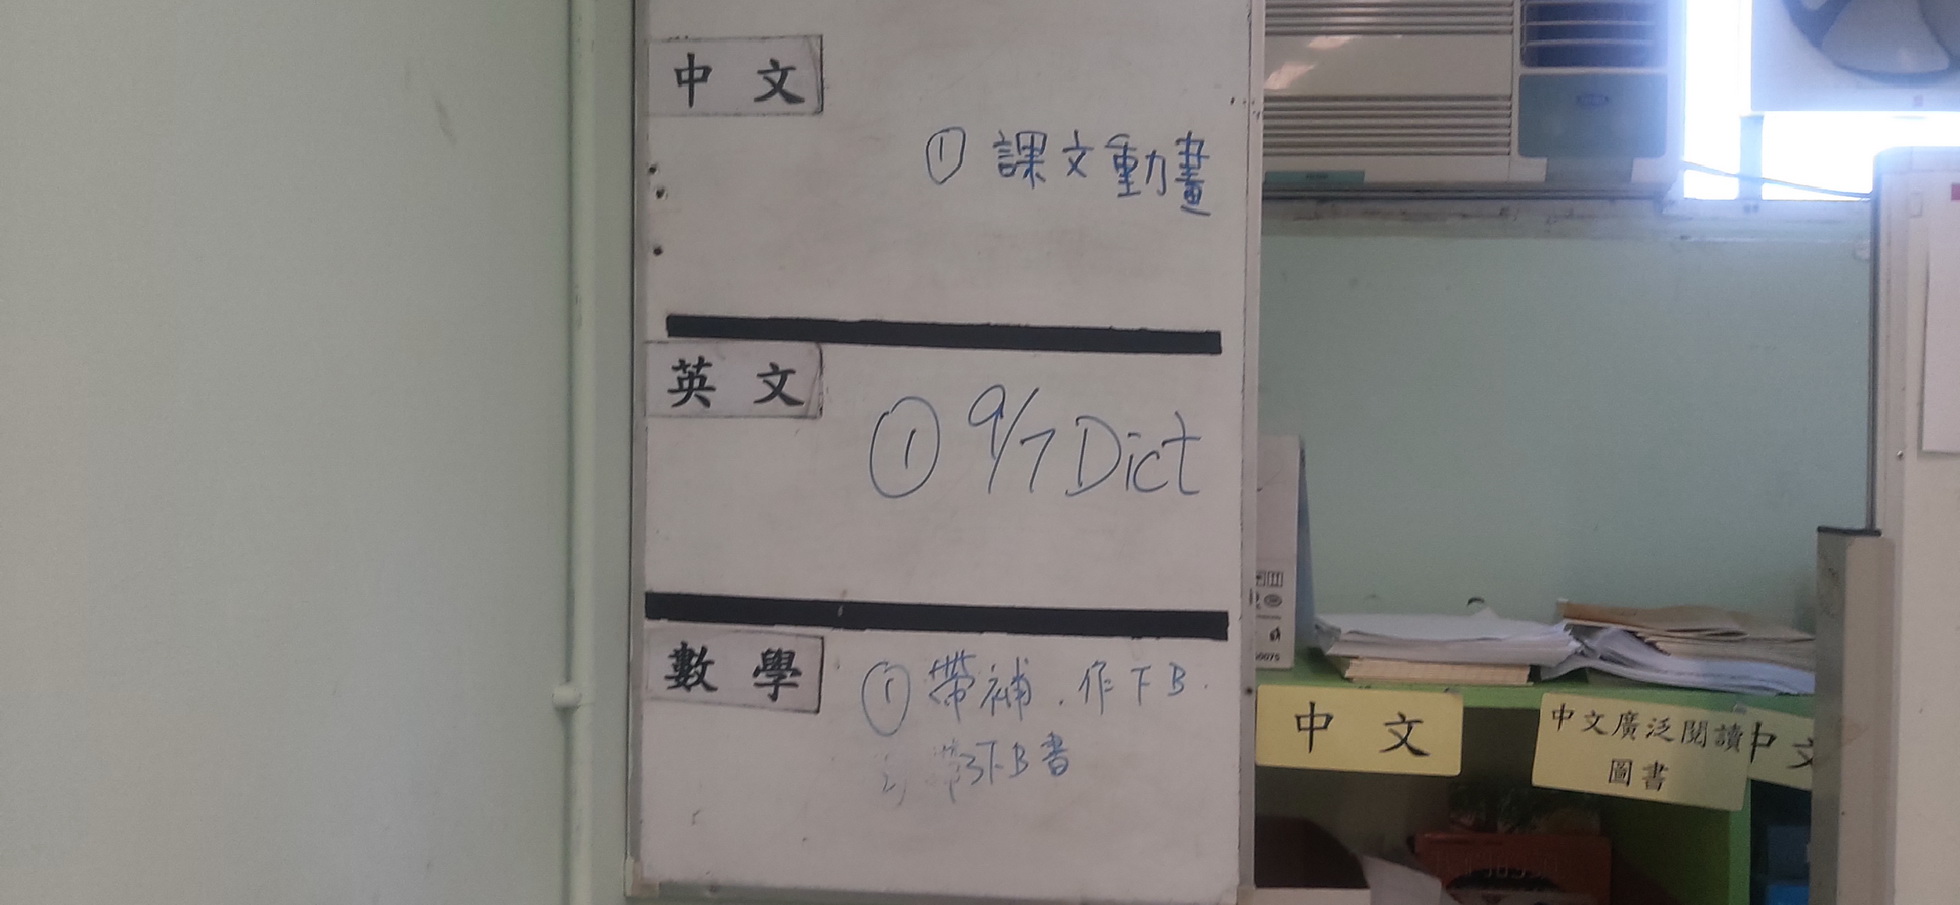 中文
① 課文動畫
英文
① 9/7 Dict
數學
① 帶補．作下B.
下B書
中文
中文廣泛閱讀
圖書
中文